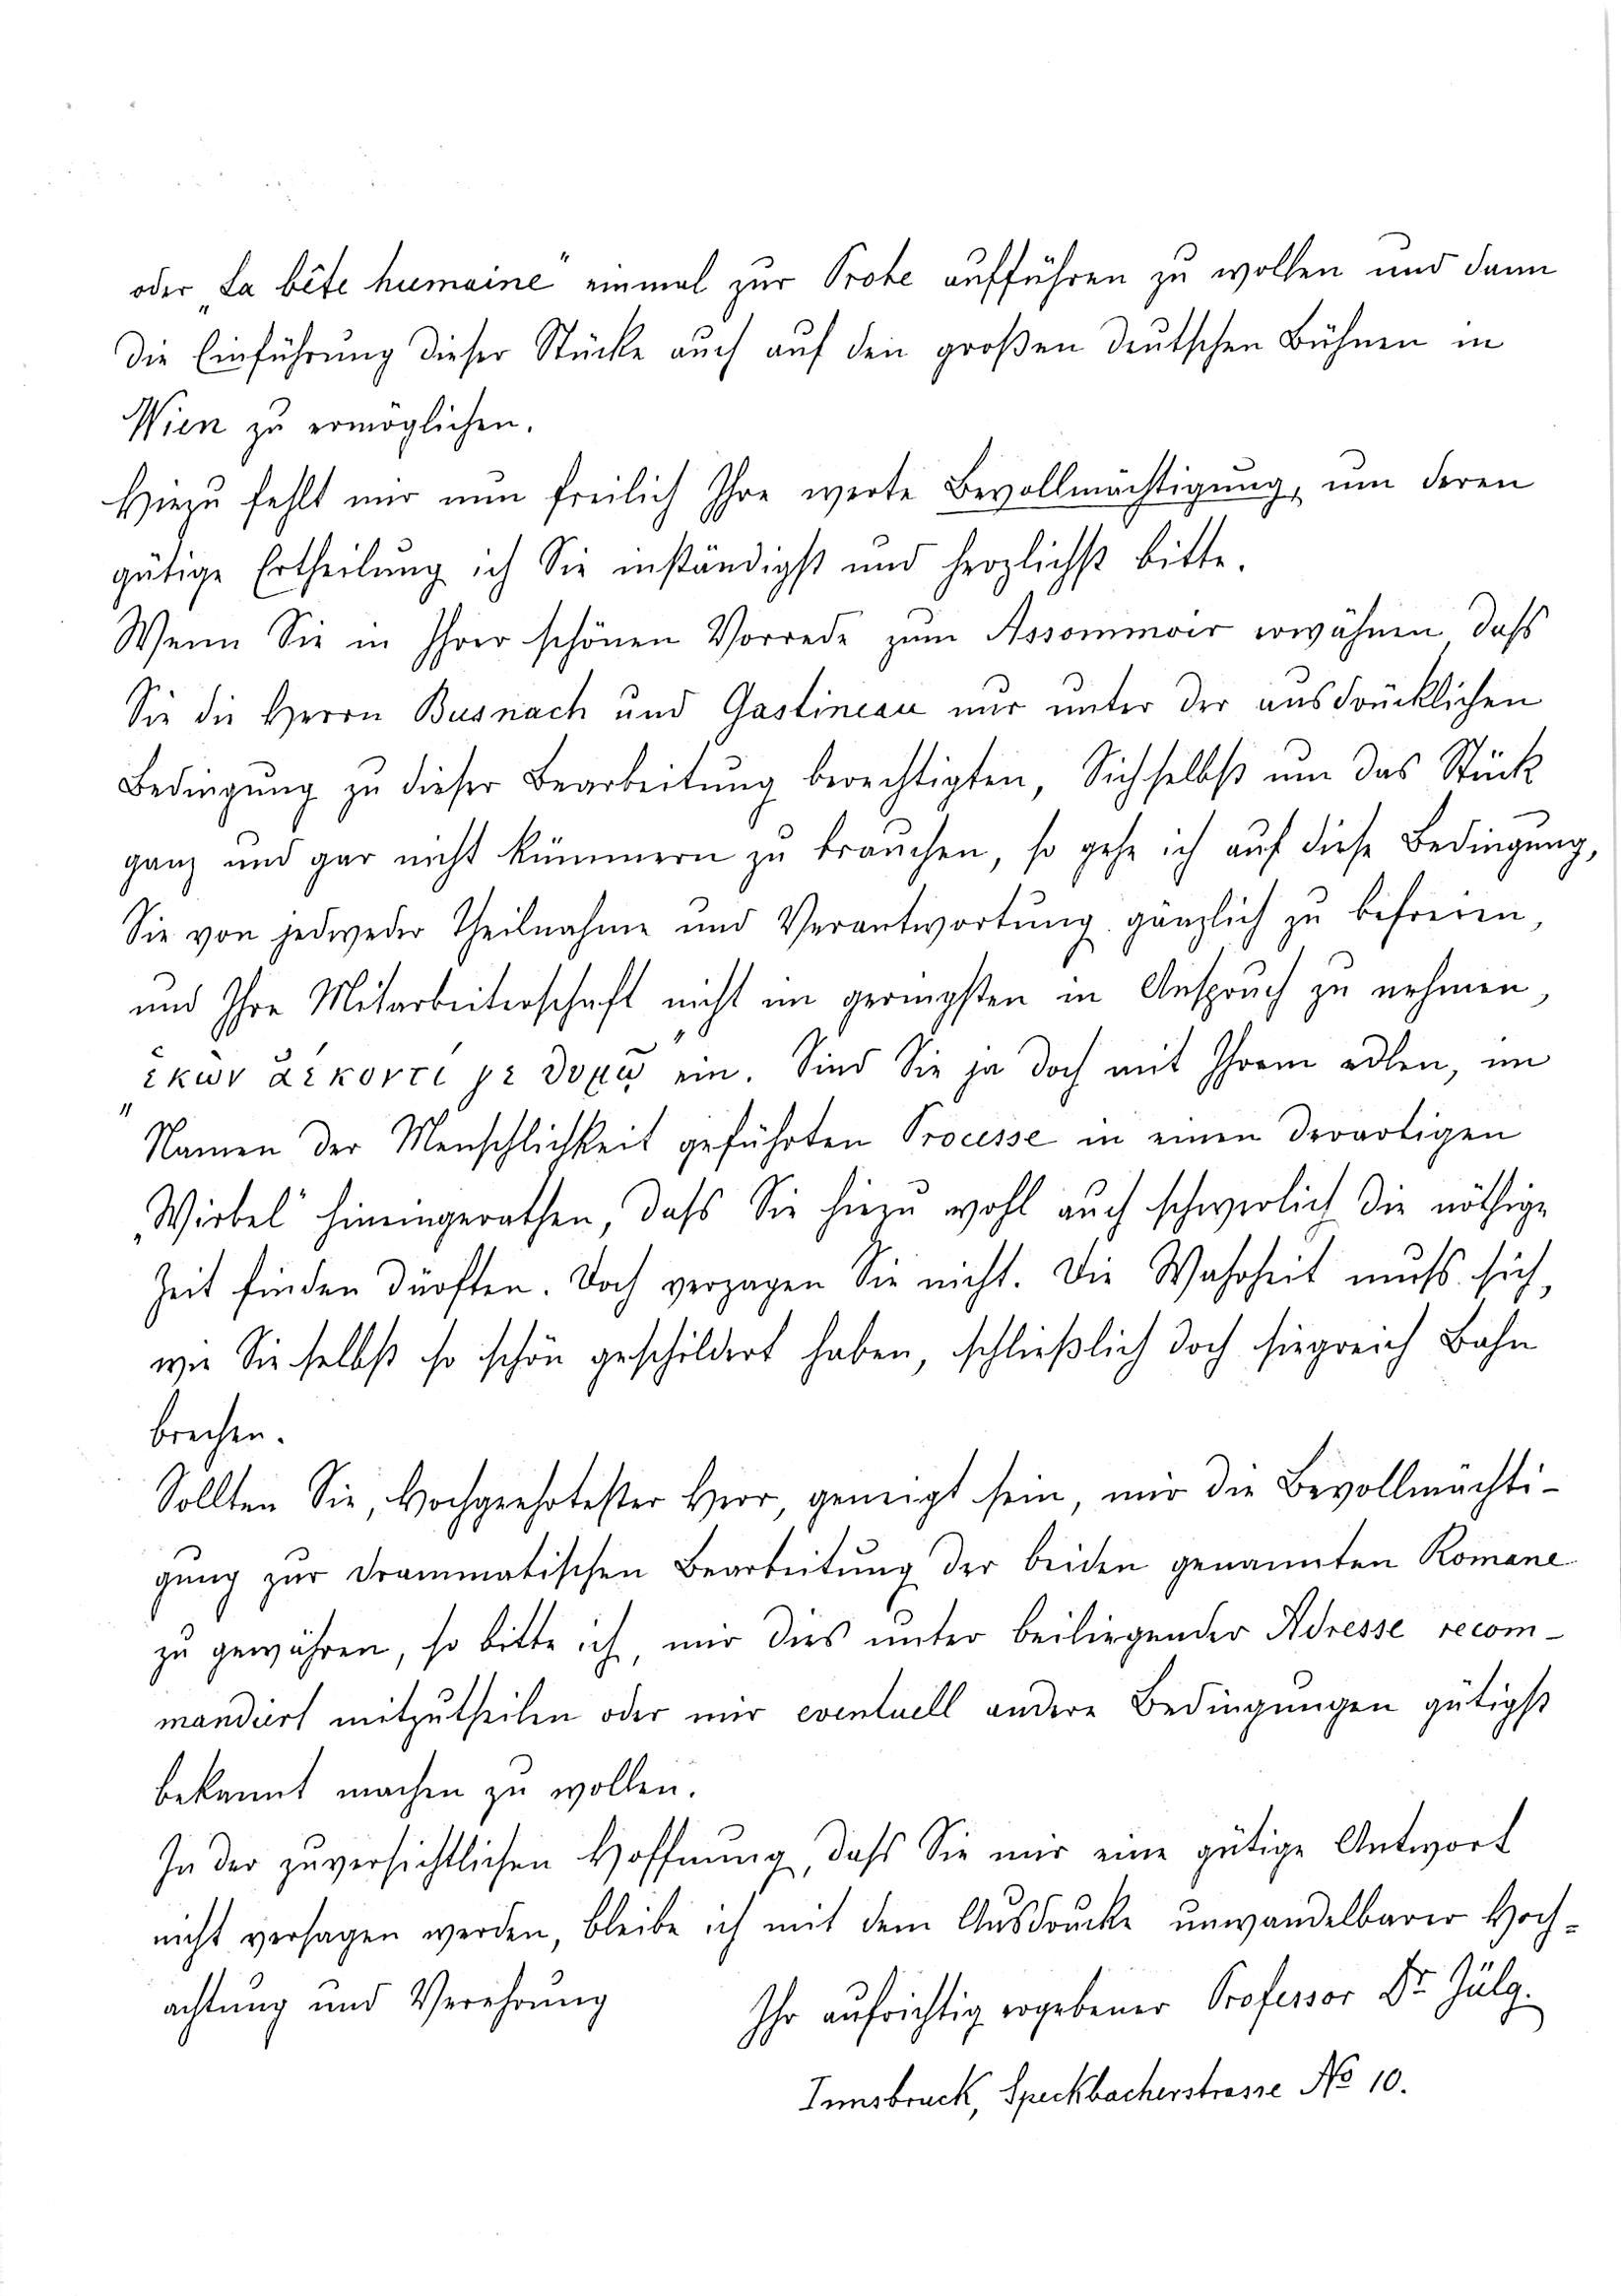 oder „La bête humaine" einmal zur Probe aufführen zu wollen und dann
die Einführung dieser Stücke auch auf den großen deutschen Bühnen in
Wien zu ermöglichen.
Hiezu fehlt mir nun freilich Ihre werte Bevollmächtigung, um deren
gütige Ertheilung ich Sie inständigst und herzlichst bitte.
Wenn Sie in Ihrer schönen Vorrede zum Assommoir erwähnen, dass
Sie die Herrn Busnach und Gastineau nur unter der ausdrücklichen
Bedingung zu dieser Bearbeitung berechtigten, Sich selbst um das Stück
ganz und gar nicht kümmern zu brauchen, so gehe ich auf diese Bedingung,
Sie von jedweder Theilnahme und Verantwortung gänzlich zu befreien,
und Ihre Mitarbeiterschaft nicht im geringsten in Anspruch zu nehmen,
„ἑκὼν ἀέκοντί γε θυμῷ" ein. Sind Sie ja doch mit Ihrem edlen, im
Namen der Menschlichkeit geführten Processe in einen derartigen
„Wirbel" hineingerathen, dass Sie hiezu wohl auch schwerlich die nöthige
Zeit finden dürften. Doch verzagen Sie nicht. Die Wahrheit muss sich,
wie Sie selbst so schön geschildert haben, schließlich doch siegreich Bahn
brechen.
Sollten Sie, Hochgeehrtester Herr, geneigt sein, mir die Bevollmächti-
gung zur drammatischen Bearbeitung der beiden genannten Romane
zu gewähren, so bitte ich, mir dies unter beiliegender Adresse recom-
mandirt mitzutheilen oder mir eventuell andere Bedingungen gütigst
bekannt machen zu wollen.
In der zuversichtlichen Hoffnung, dass Sie mir eine gütige Antwort
nicht versagen werden, bleibe ich mit dem Ausdrucke unwandelbarer Hoch-
achtung und Verehrung
Ihr aufrichtig ergebener Professor Dr. Jülg.
Innsbruck, Speckbacherstrasse No 10.